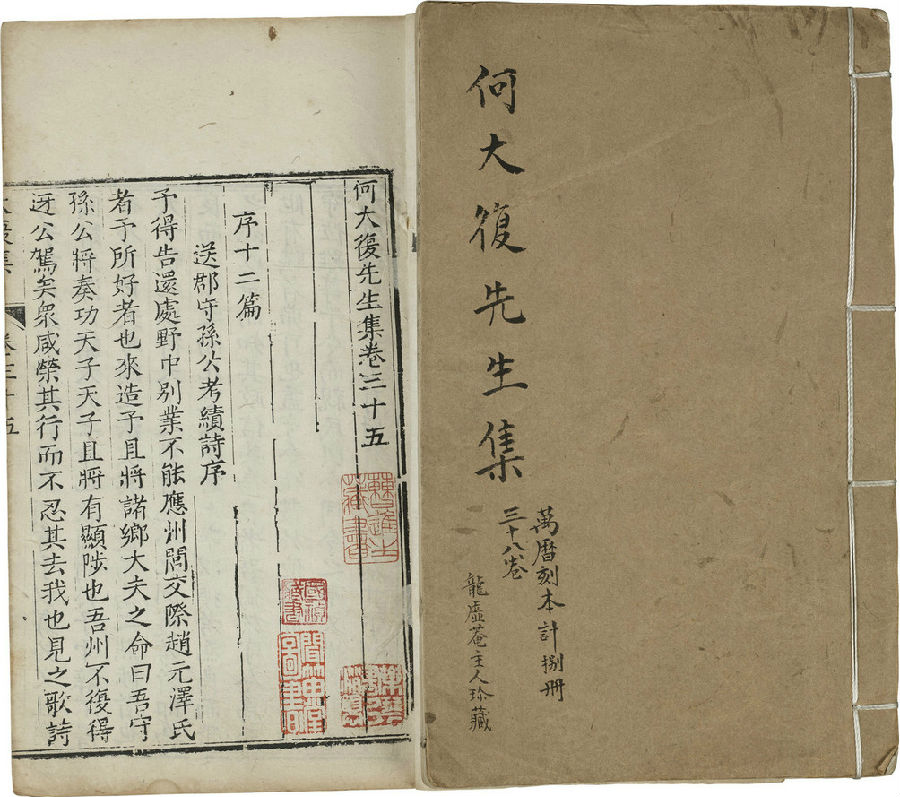 何大復先生集
萬曆刻本計捌冊
三十八卷
龍虛菴主人珍藏
何大復先生集卷三十五
序十二篇
送郡守孫公考績詩序
予得告還處野中別業不能應州閭交際趙元澤氏
者予所好者也來造予且將諸鄉大夫之命曰吾守
孫公將奏功天子天子且將有顯陟也吾州不復得
迓公駕矣衆咸榮其行而不忍其去我也見之歌詩
大復集 卷三十五
藏書